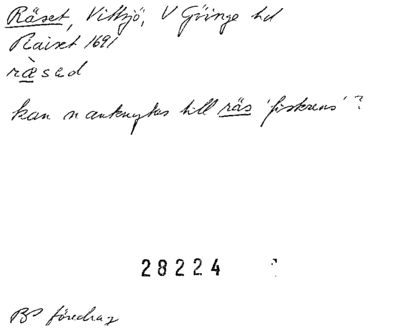 Räset, Vittsjö, V Göinge hd
Raiset 1691
ræ̀sed
kan n anknytas till räs 'fiskrens' ?
28224
BP föredrag